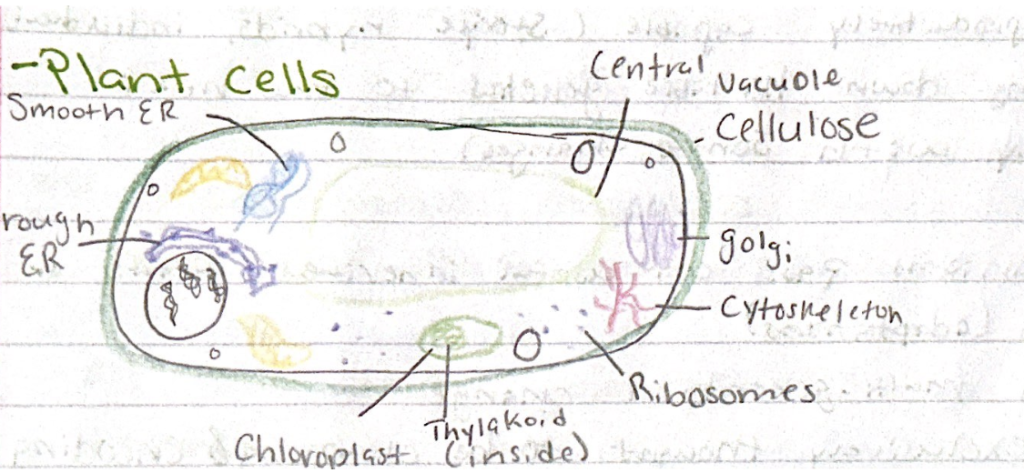 -Plant cells
Smooth ER
Central vacuole
Cellulose
rough
ER
golgi
Cytoskeleton
Ribosomes
Chloroplast
Thylakoid
(inside)